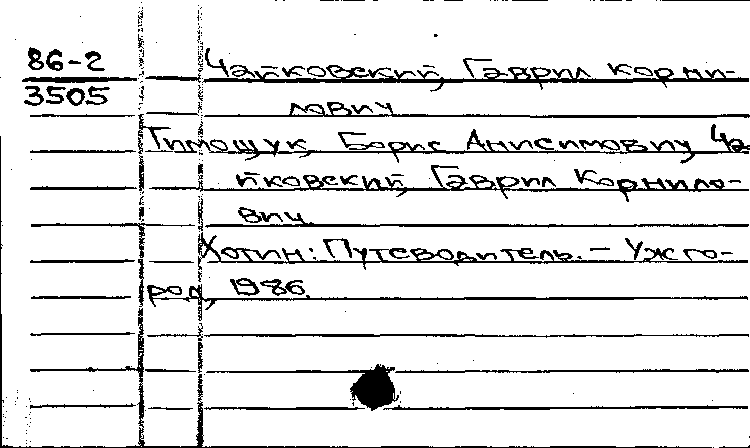 86-2
3505
Чайковский, Гаврил Корни-
лович
Тимощук, Борис Анисимович, Ча-
йковский, Гаврил Корнило-
вич.
Хотин: Путеводитель. – Ужго-
род, 1986.